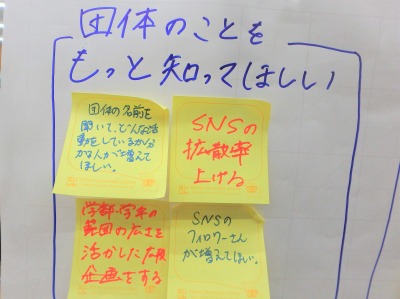 団体のことを
もっと知ってほしい
団体の名前を
聞いて、どんな活
動をしているか分
かる人が増えて
ほしい。
SNSの
拡散率
上げる
学部・学年の
範囲の広さを
活かした広報
企画をする
SNSの
フォロワーさん
が増えてほしい。